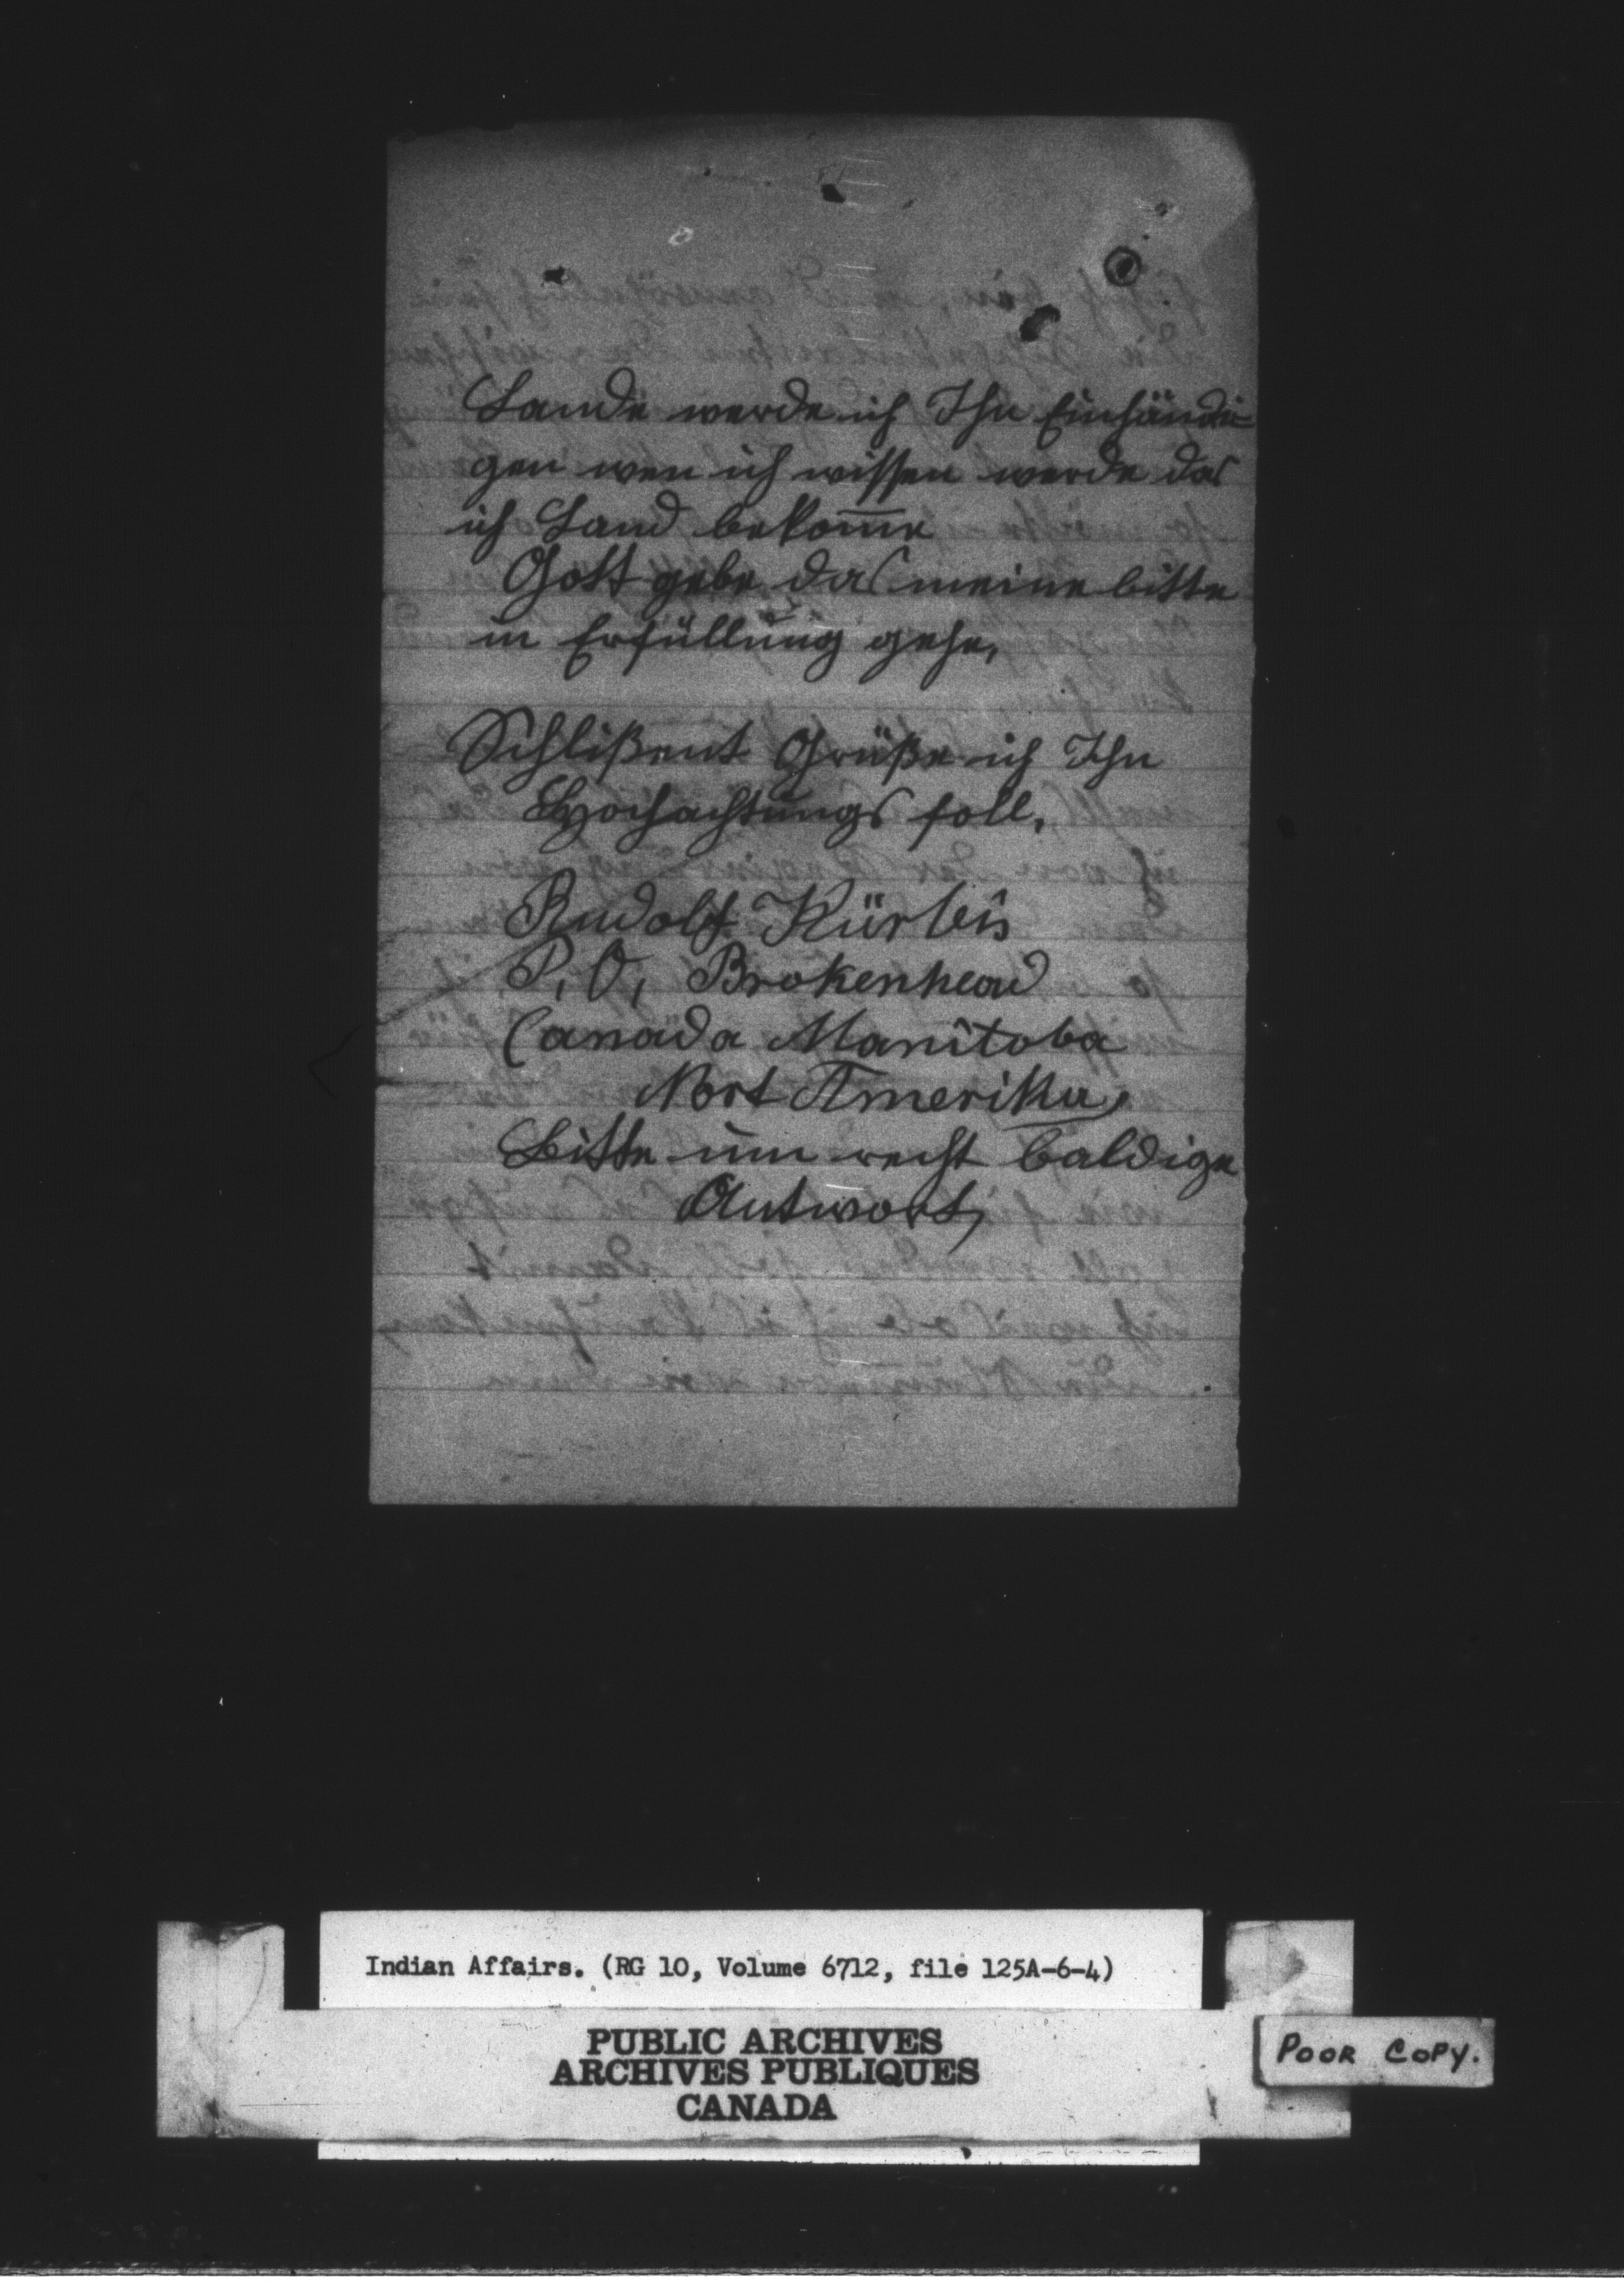 Lande werde ich Ihn Einhändi-
gen wen ich wissen werde das
ich Land bekom̅e
Gott gebe das meine bitte
in Erfüllung gehe.
Schlißent Grüße ich Ihn
Hochachtungs foll.
Rudolf Kürbis
P. O. Brokenhead
Canada Manitoba
Nort Amerika,
Bitte um recht baldige
Antwort,
Indian Affairs. (RG 10, Volume 6712, file 125A-6-4)
PUBLIC ARCHIVES
ARCHIVES PUBLIQUES
CANADA
POOR COPY.